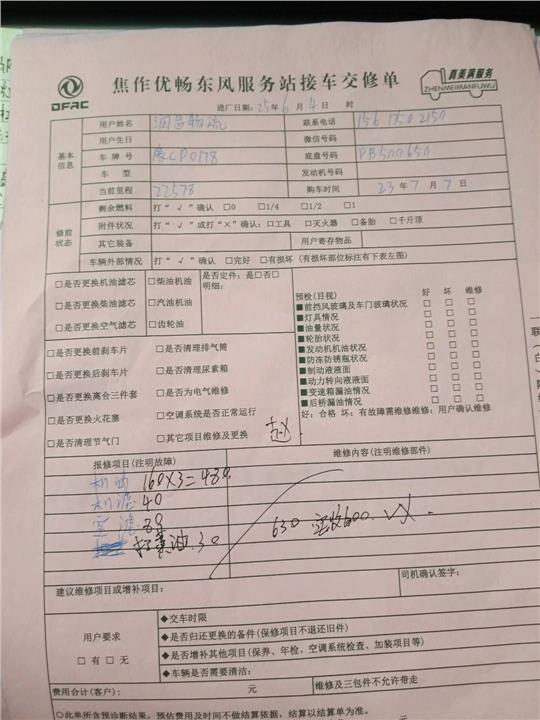 焦作优畅东风服务站接车交修单
DFAC
真美满服务
ZHENMEIMANFUWU
进厂日期：25年6月4日 时
基本信息
用户姓名 润昌物流 联系电话 156 1380 2150
用户生日 微信号码
车牌号 底盘号码 PB500650
车型 发动机号码
当前里程 22578 购车时间 23年7月7日
修前状态
剩余燃料 打“√”确认 □0 □1/4 □1/2 □1
附件状况 打“√”或打“×”确认：□工具 □灭火器 □备胎 □千斤顶
其它装备 用户寄存物品
车辆外部情况 打“√”确认 □完好 □有损坏（有损坏部位标注有下表左图）
□是否更换机油滤芯 □柴油机油 是否定件：是□否□
□是否更换柴油滤芯 □汽油机油 明细：
□是否更换空气滤芯 □齿轮油
□是否更换前刹车片 □是否清理排气筒
□是否更换后刹车片 □是否清理尿素箱
□是否更换离合三件套 □是否为电气维修
□是否更换火花塞 □空调系统是否正常运行
□是否清理节气门 □其它项目维修及更换
预检（目视） 好 坏 维修
■前挡风玻璃及车门玻璃状况 □ □ □
■灯具情况 □ □ □
■油量状况 □ □ □
■轮胎状况 □ □ □
■发动机机油状况 □ □ □
■防冻防锈瓶状况 □ □ □
■制动液液面 □ □ □
■动力转向液液面 □ □ □
■变速箱漏油情况 □ □ □
■后桥漏油情况 □ □ □
好：合格 坏：有故障需维修维修：用户确认维修
报修项目（注明故障） 维修内容（注明维修部件）
机油 160×3=480
机滤 40
空滤 80
打黄油 30
630 实收600. VX.
建议维修项目或增补项目： 司机确认签字：
用户要求
□有 □无
◆交车时限
◆是否归还更换的备件（保修项目不退还旧件）
◆是否增补其他项目（保养、年检、空调系统检查、加装项目等）
◆车辆是否需要清洁：
费用合计（客户）： 元 元 维修及三包件不允许带走
◇此单所含预诊断结果，预估费用及时间不做结算依据，结算以结算单为准。